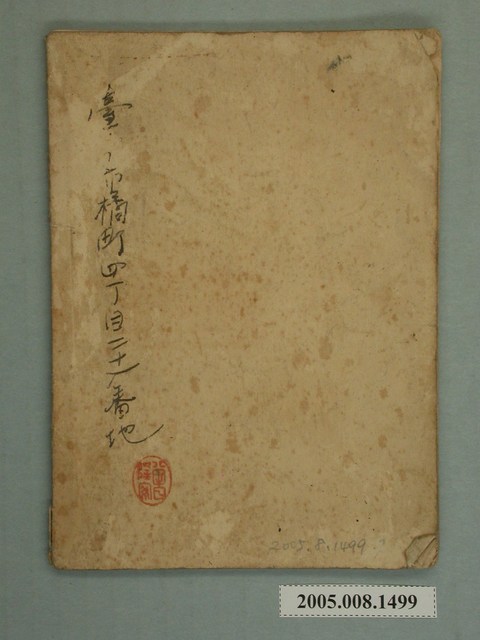 臺市橘町四丁目二十一番地
2005.8.1499
2005.008.1499